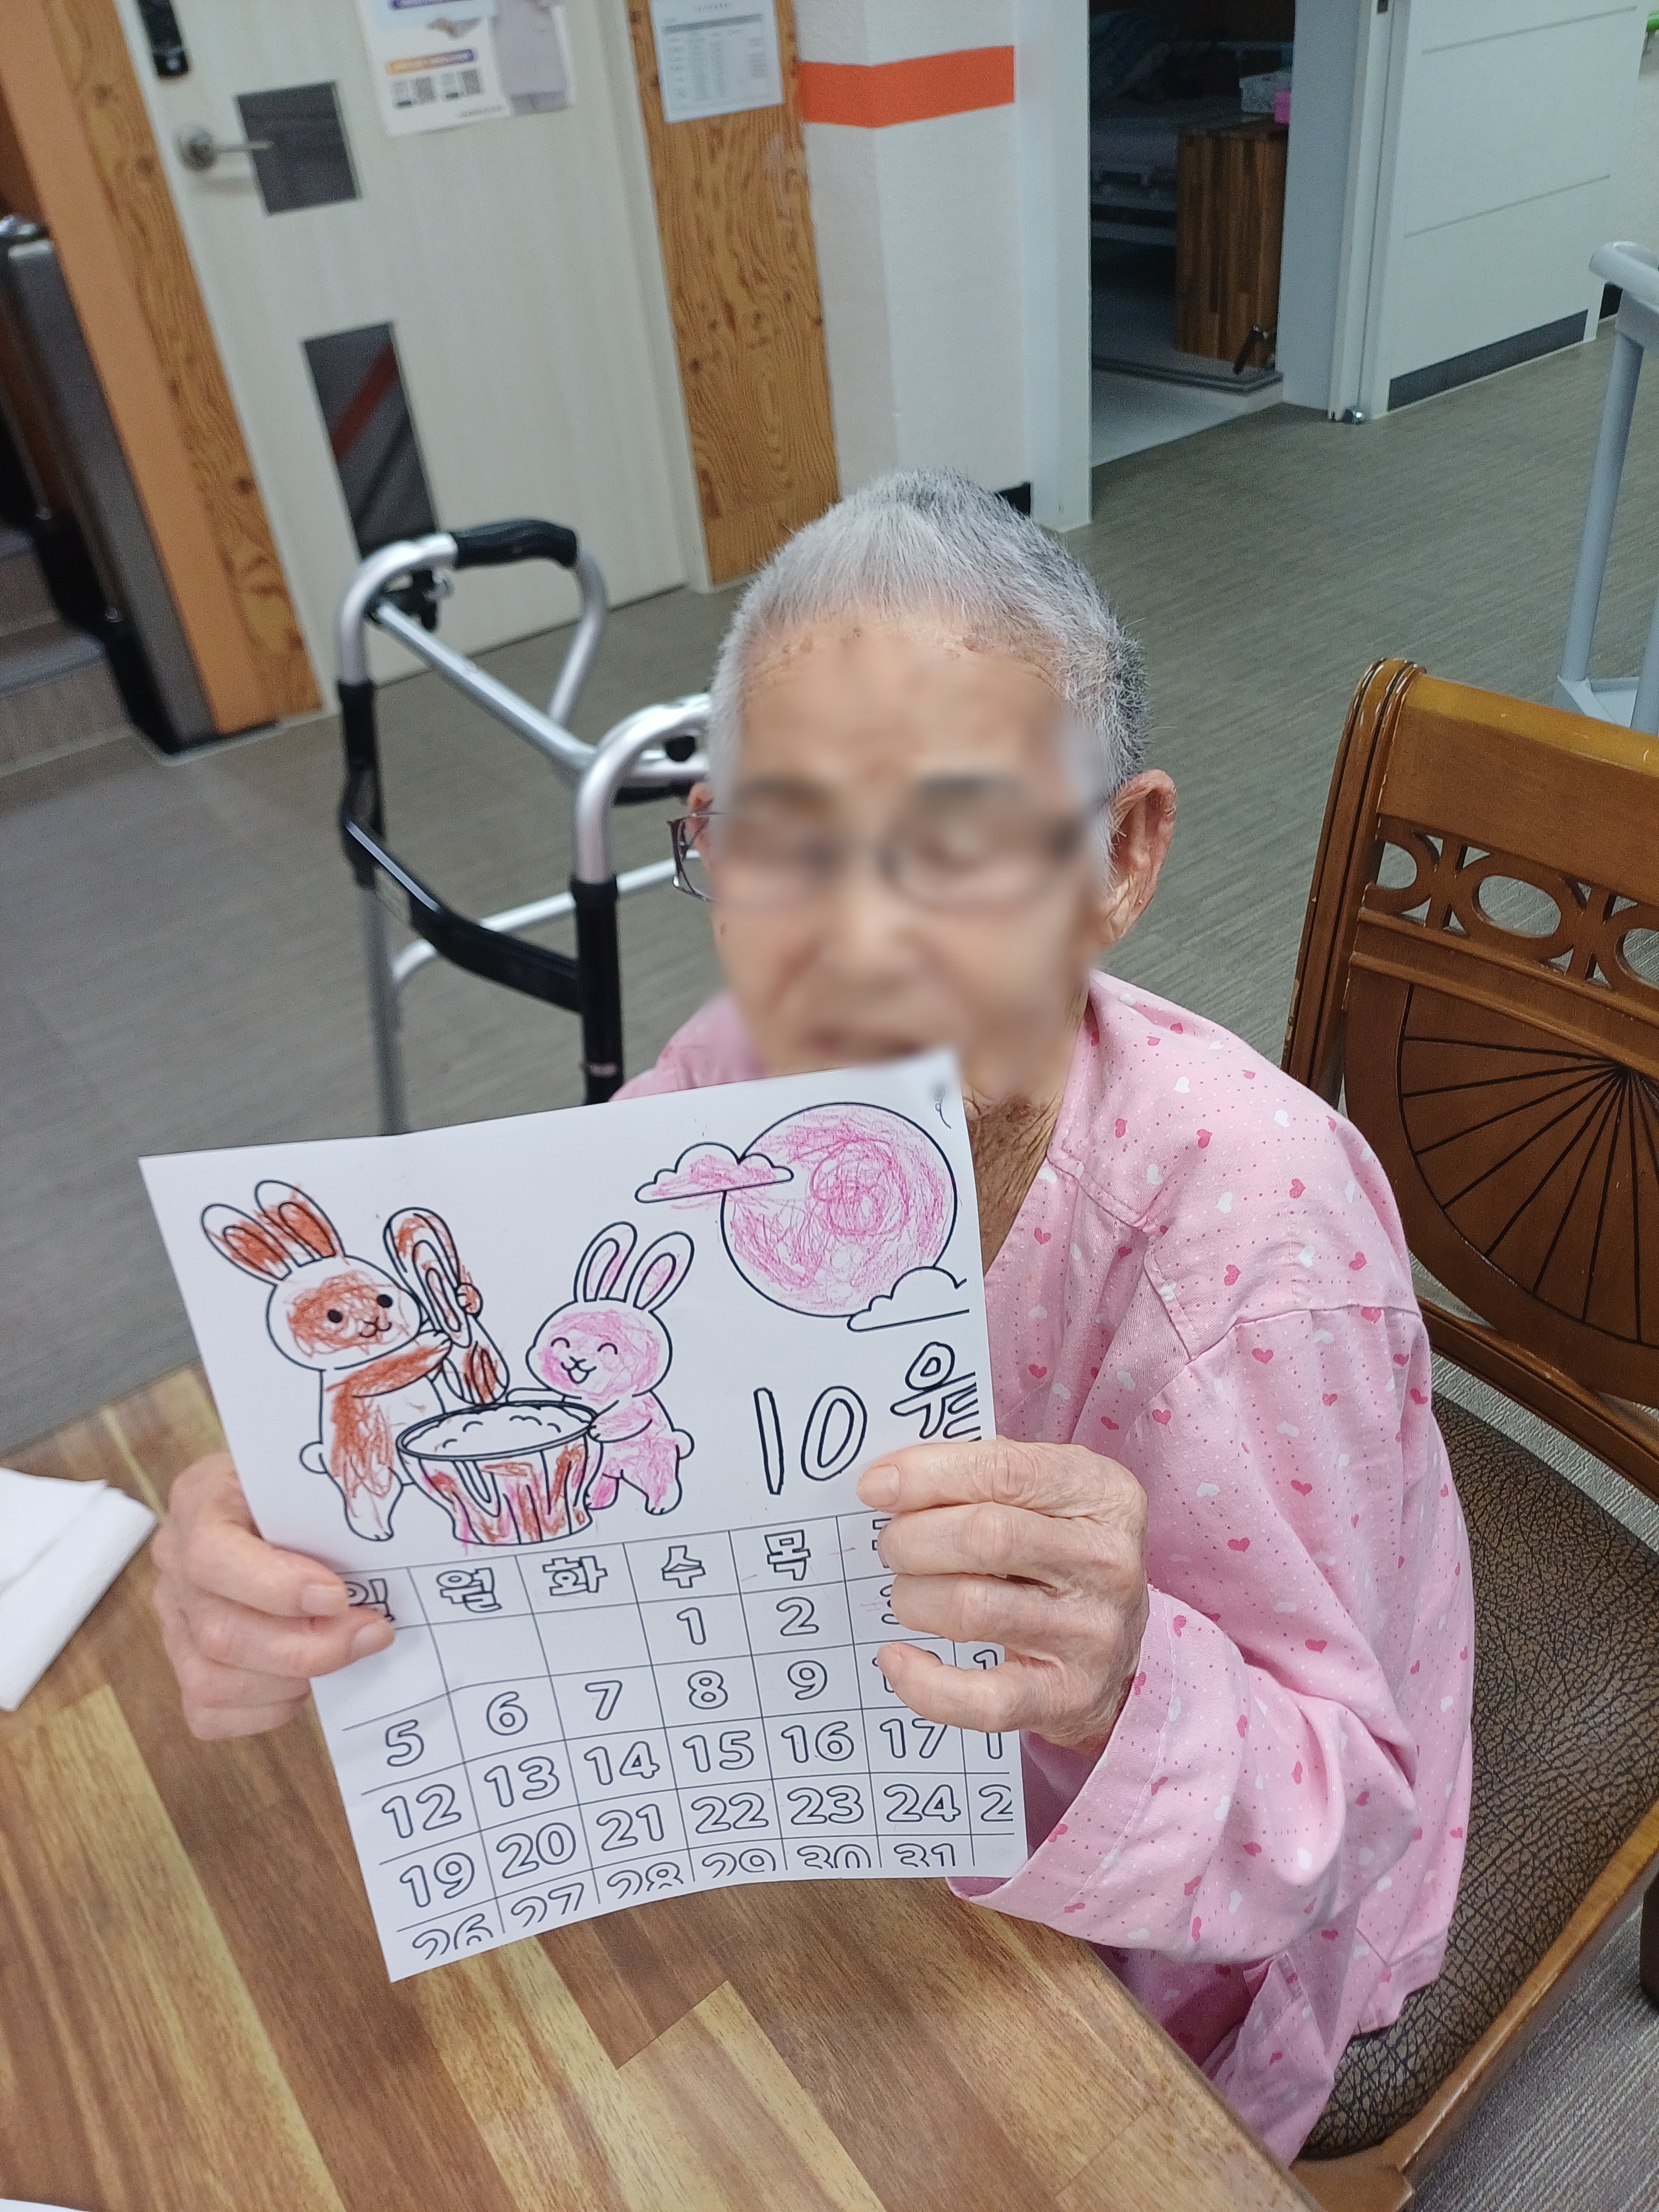 10월
일 월 화 수 목
1 2 3
5 6 7 8 9
12 13 14 15 16 17
19 20 21 22 23 24
26 27 28 29 30 31